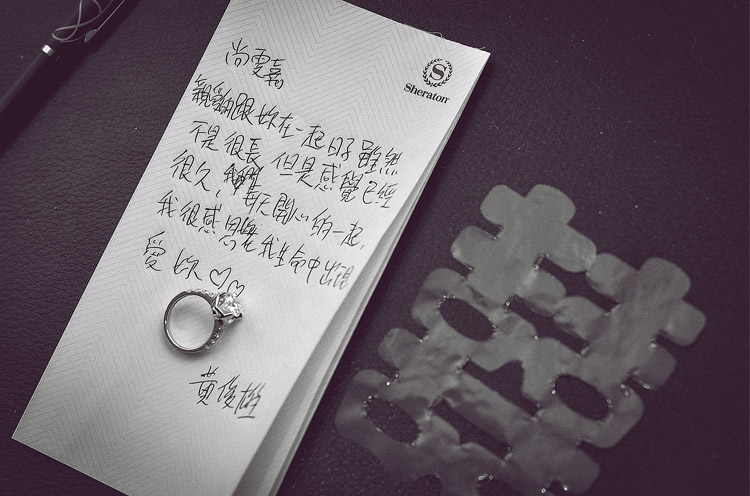 尚雯嘉
S
Sheraton
親愛的跟妳在一起日子雖然
不是很長 但是感覺已經
很久, 每天開心的一起,
我很感恩在我生命中出現
愛妳♡♡
黃俊雄